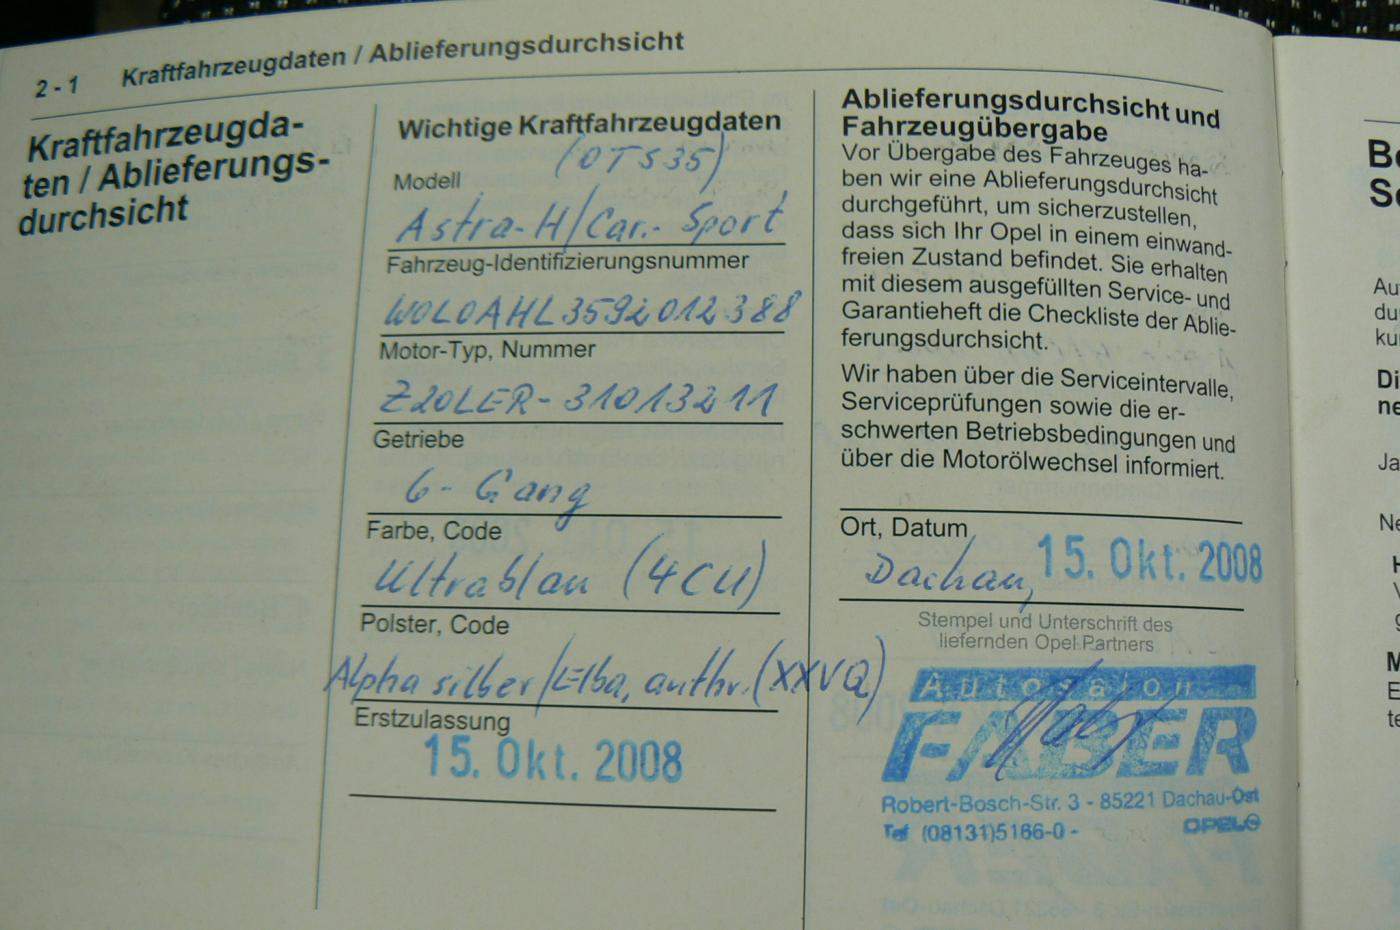 2 - 1 Kraftfahrzeugdaten / Ablieferungsdurchsicht
Kraftfahrzeugda-
ten / Ablieferungs-
durchsicht
Wichtige Kraftfahrzeugdaten
(OTS35)
Modell
Astra-H/Car.- Sport
Fahrzeug-Identifizierungsnummer
W0L0AHL3592012388
Motor-Typ, Nummer
Z20LER- 31013211
Getriebe
6- Gang
Farbe, Code
Ultrablau (4CU)
Polster, Code
Alpha silber/Elba, anthr. (XXVQ)
Erstzulassung
15. Okt. 2008
Ablieferungsdurchsicht und
Fahrzeugübergabe
Vor Übergabe des Fahrzeuges ha-
ben wir eine Ablieferungsdurchsicht
durchgeführt, um sicherzustellen,
dass sich Ihr Opel in einem einwand-
freien Zustand befindet. Sie erhalten
mit diesem ausgefüllten Service- und
Garantieheft die Checkliste der Ablie-
ferungsdurchsicht.
Wir haben über die Serviceintervalle,
Serviceprüfungen sowie die er-
schwerten Betriebsbedingungen und
über die Motorölwechsel informiert.
Ort, Datum
Dachau, 15. Okt. 2008
Stempel und Unterschrift des
liefernden Opel Partners
Autosalon
FABER
Robert-Bosch-Str. 3 - 85221 Dachau-Ost
Tel (08131)5166-0 - OPEL